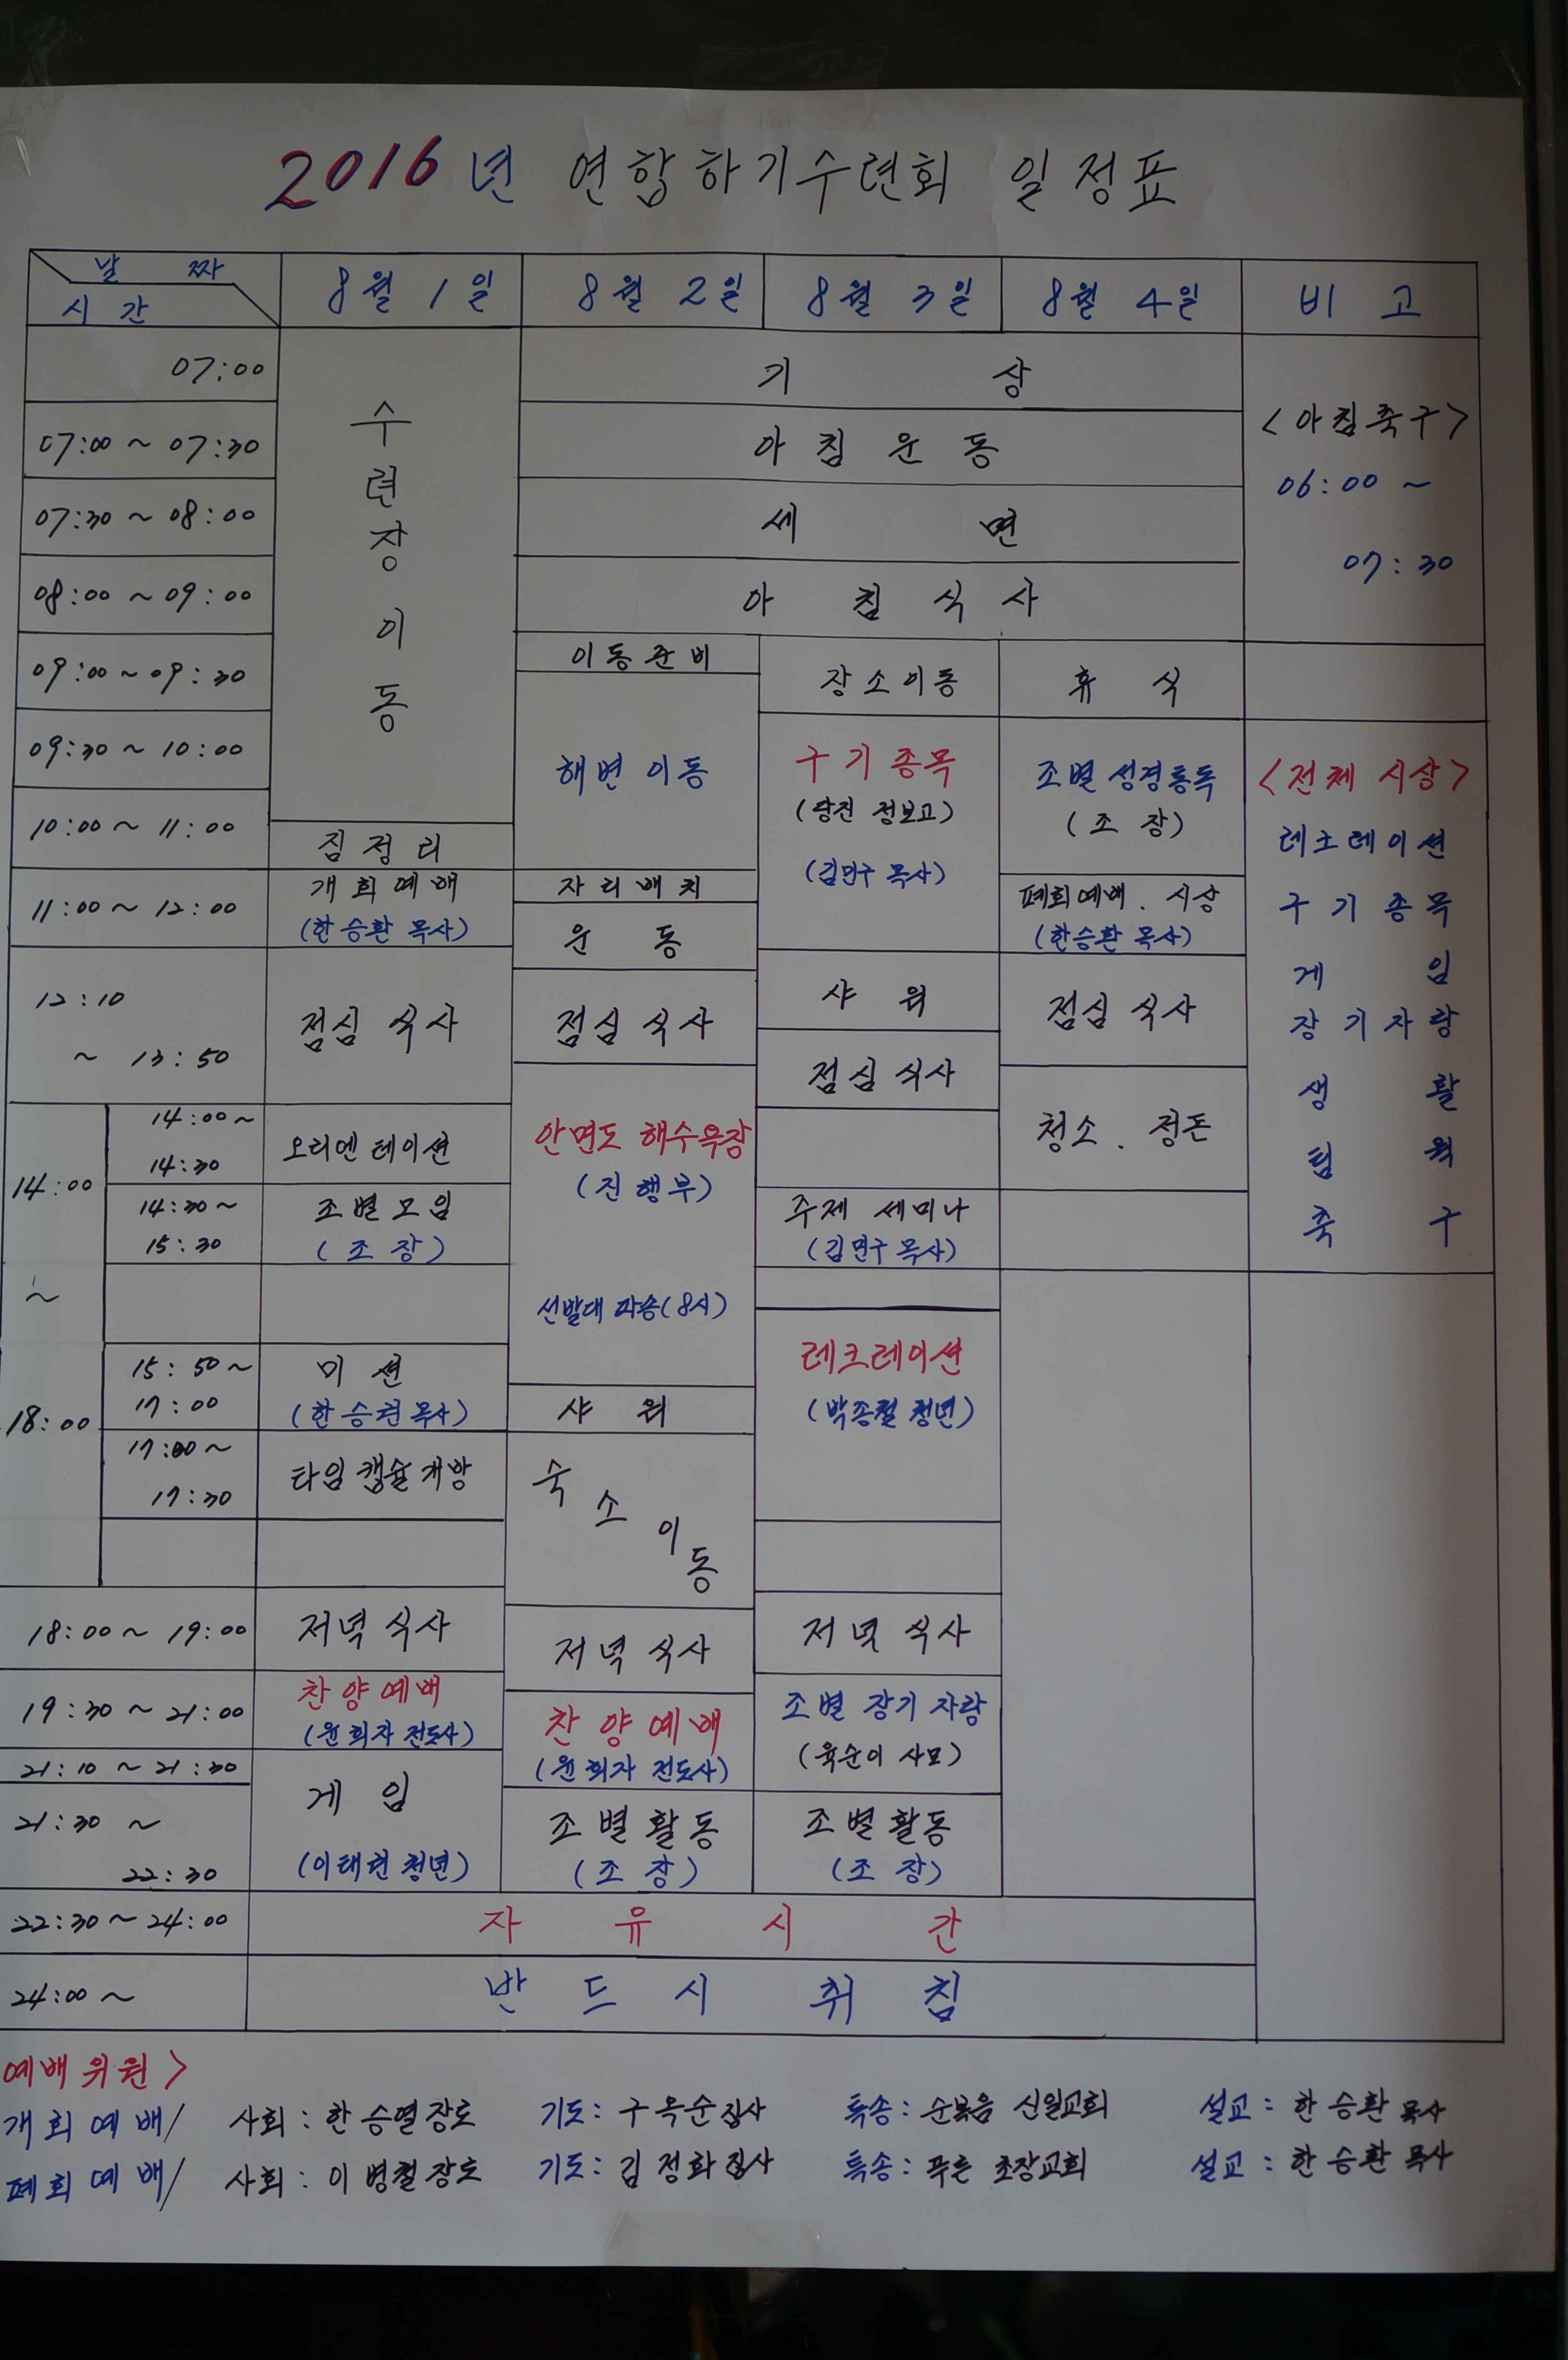 2016년 연합하기수련회 일정표
날 짜
시 간
8월 1일
8월 2일
8월 3일
8월 4일
비 고
07:00
기 상
수련장 이동
<아침축구>
06:00 ~
07:30
07:00 ~ 07:30
아 침 운 동
07:30 ~ 08:00
세 면
08:00 ~ 09:00
아 침 식 사
09:00 ~ 09:30
이동준비
장소이동
휴 식
09:30 ~ 10:00
해변 이동
구기종목
(당진 정보고)
(김민구 목사)
조별 성경통독
(조 장)
<전체 시상>
레크레이션
구기종목
게 임
장기자랑
생 활
팀 웍
축 구
10:00 ~ 11:00
짐정리
11:00 ~ 12:00
개회예배
(한승환 목사)
자리배치
운 동
폐회예배. 시상
(한승환 목사)
12:10
~ 13:50
점심 식사
점심 식사
샤 워
점심 식사
점심 식사
청소. 정돈
14:00
~
18:00
14:00~
14:30
오리엔테이션
안면도 해수욕장
(진행부)
14:30~
15:30
조별모임
(조 장)
주제 세미나
(김민구 목사)
선발대 파송(8시)
15:50~
17:00
미 션
(한승권 목사)
샤 워
레크레이션
(박종철 청년)
17:00~
17:30
타임캡슐개방
숙소이동
18:00 ~ 19:00
저녁 식사
저녁 식사
저녁 식사
19:30 ~ 21:00
찬양예배
(윤희자 전도사)
찬양예배
(윤희자 전도사)
조별 장기 자랑
(육순이 사모)
21:10 ~ 21:30
게 임
(이태현 청년)
21:30 ~
22:30
조별활동
(조 장)
조별활동
(조 장)
22:30 ~ 24:00
자 유 시 간
24:00 ~
반 드 시 취 침
예배위원>
개회예배/ 사회: 한승열장로 기도: 구옥순집사 특송: 순복음 신일교회 설교: 한승환 목사
폐회예배/ 사회: 이병철장로 기도: 김정화집사 특송: 푸른 초장교회 설교: 한승환 목사